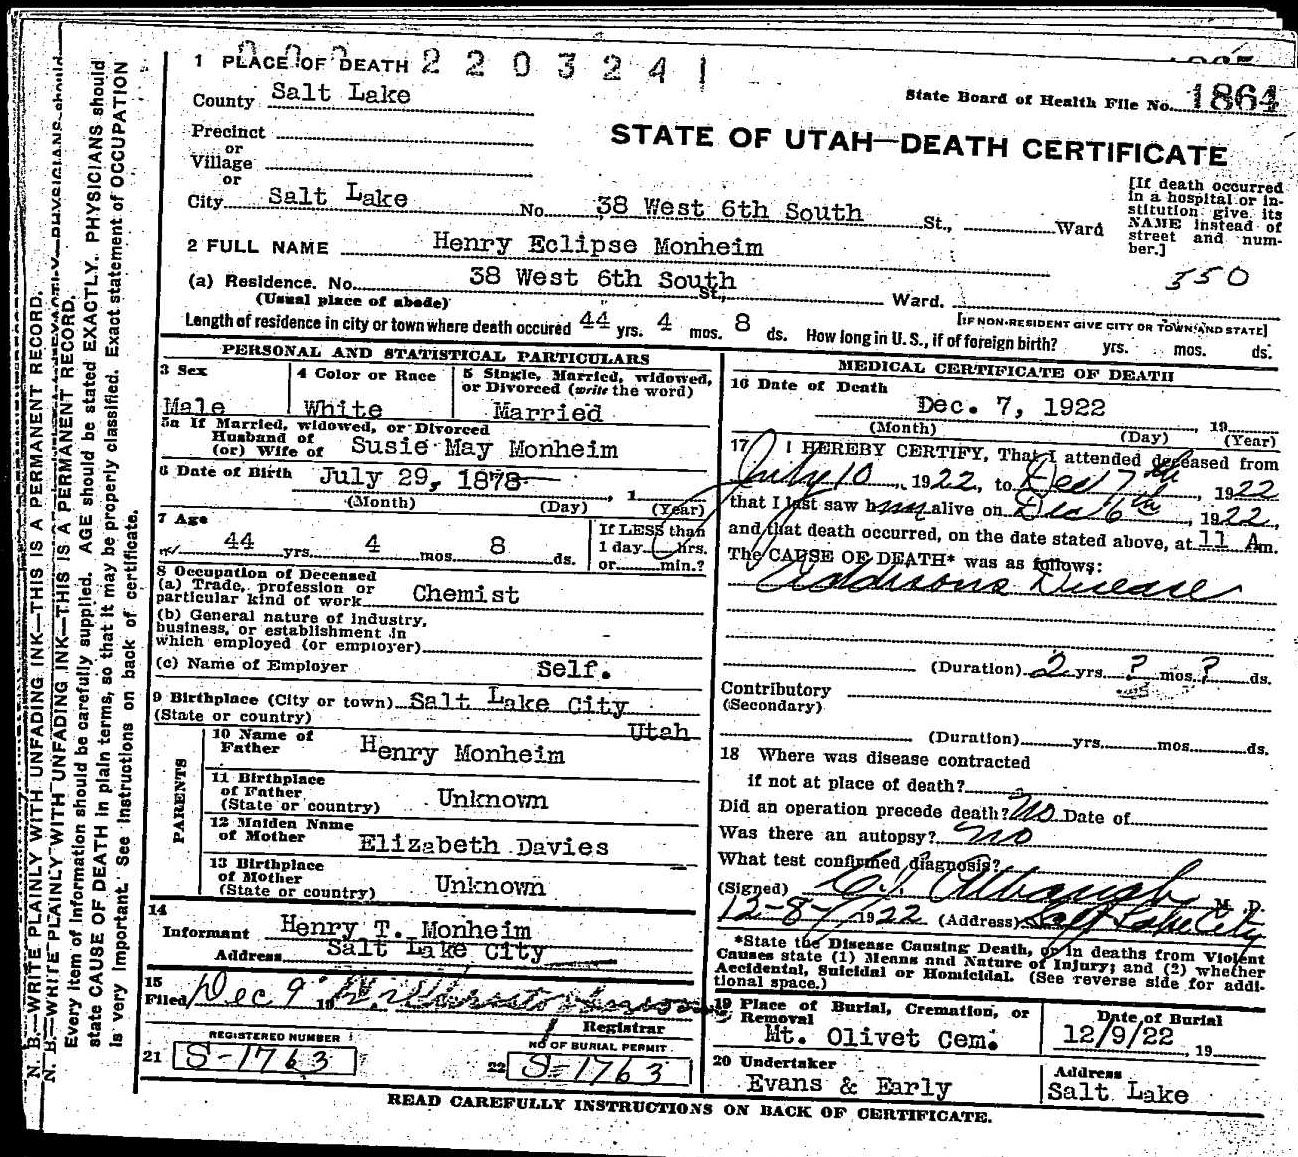 1 PLACE OF DEATH 2 2 0 3 2 4
County Salt Lake
State Board of Health File No. 1864
Precinct
or
Village
or
STATE OF UTAH—DEATH CERTIFICATE
City Salt Lake No. 38 West 6th South St., Ward
[If death occurred in a hospital or institution give its NAME instead of street and number.]
2 FULL NAME Henry Eclipse Monheim
350
(a) Residence. No. 38 West 6th South St., Ward.
(Usual place of abode)
[IF NON-RESIDENT GIVE CITY OR TOWN AND STATE]
Length of residence in city or town where death occured 44 yrs. 4 mos. 8 ds. How long in U. S., if of foreign birth? yrs. mos. ds.
PERSONAL AND STATISTICAL PARTICULARS
3 Sex
Male
4 Color or Race
White
5 Single, Married, widowed, or Divorced (write the word)
Married
5a If Married, widowed, or Divorced
Husband of
(or) Wife of Susie May Monheim
6 Date of Birth July 29, 1878
(Month) (Day) (Year)
7 Age
44 yrs. 4 mos. 8 ds.
If LESS than
1 day hrs.
or min.?
8 Occupation of Deceased
(a) Trade, profession or
particular kind of work Chemist
(b) General nature of industry,
business, or establishment in
which employed (or employer)
(c) Name of Employer Self.
9 Birthplace (City or town) Salt Lake City
(State or country) Utah
PARENTS
10 Name of
Father Henry Monheim
11 Birthplace
of Father
(State or country) Unknown
12 Maiden Name
of Mother Elizabeth Davies
13 Birthplace
of Mother
(State or country) Unknown
14
Informant Henry T. Monheim
Address Salt Lake City
15
Filed Dec 9 19
Registrar
REGISTERED NUMBER
21 S-1763
NO OF BURIAL PERMIT
22 S-1763
MEDICAL CERTIFICATE OF DEATH
16 Date of Death
Dec. 7, 1922
, 19
(Month) (Day) (Year)
17 I HEREBY CERTIFY, That I attended deceased from
July 10, 1922, to Dec 7th, 1922
that I last saw him alive on Dec 6th, 1922,
and that death occurred, on the date stated above, at 11 A m.
The CAUSE OF DEATH* was as follows:
Addisons Disease
(Duration) 2 yrs. ? mos. ? ds.
Contributory
(Secondary)
(Duration) yrs. mos. ds.
18 Where was disease contracted
if not at place of death?
Did an operation precede death? No Date of
Was there an autopsy? No
What test confirmed diagnosis?
(Signed) Albaugh M. D.
12-8-, 1922 (Address) Salt Lake City
*State the Disease Causing Death, or in deaths from Violent
Causes state (1) Means and Nature of Injury; and (2) whether
Accidental, Suicidal or Homicidal. (See reverse side for addi-
tional space.)
19 Place of Burial, Cremation, or
Removal
Mt. Olivet Cem.
Date of Burial
12/9/22, 19
20 Undertaker
Evans & Early
Address
Salt Lake
READ CAREFULLY INSTRUCTIONS ON BACK OF CERTIFICATE.
N. B.—WRITE PLAINLY WITH UNFADING INK—THIS IS A PERMANENT RECORD.
N. B.—WRITE PLAINLY WITH UNFADING INK—THIS IS A PERMANENT RECORD.
Every item of information should be carefully supplied. AGE should be stated EXACTLY. PHYSICIANS should
state CAUSE OF DEATH in plain terms, so that it may be properly classified. Exact statement of OCCUPATION
is very important. See instructions on back of certificate.